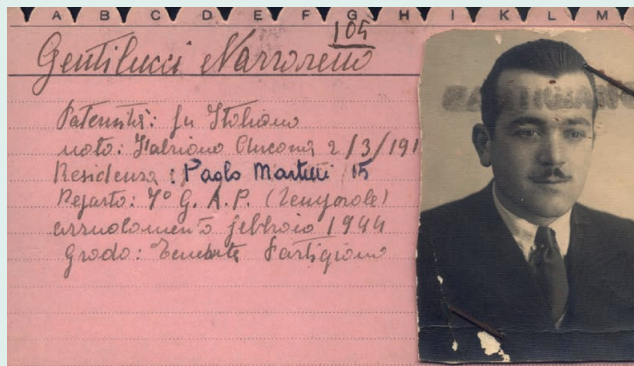 A B C D E F G H I K L M
104
Gentilucci Nazzareno
Paternità: fu Italiano
nato: Fabriano Ancona 2/3/191
Residenza: Paolo Martini 15
Reparto: 7° G. A. P. (Temporale)
arruolamento febbraio 1944
grado: Tenente Partigiano